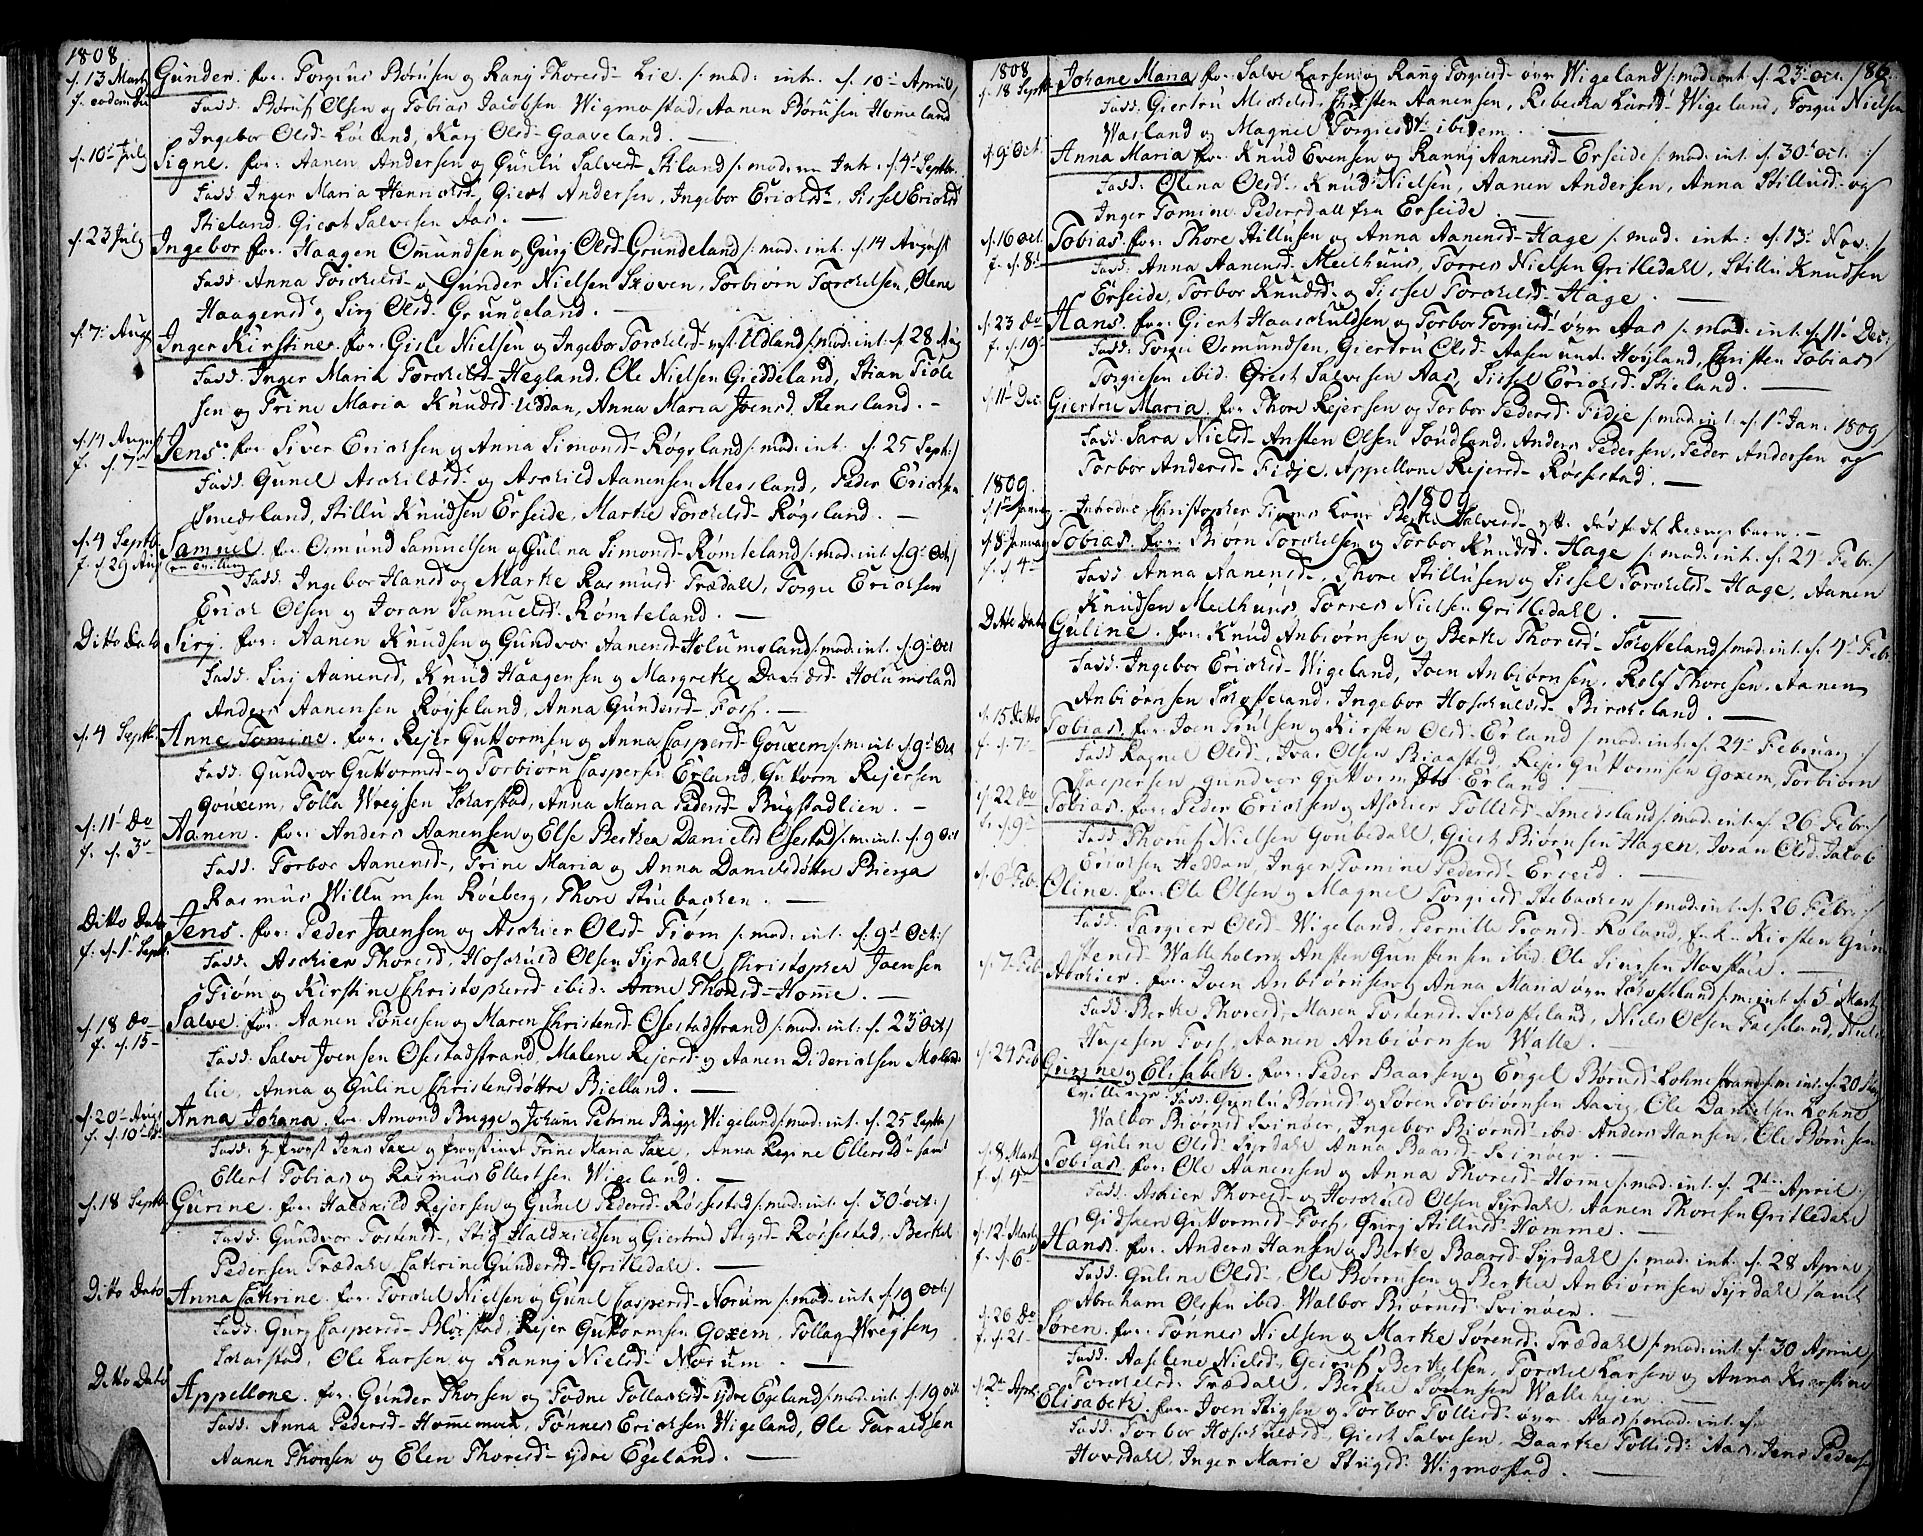 1808.
d. 13 Marti Gunder. for: Torgius Børusen og Ranj Thoresd- Lie. /: mod: int. d. 10 April/
f. eodem die Fadd: Børuf Olsen og Tobias Jacobsen Wigmostad, Aanen Børusen Homeland
Ingebor Olsd- Løland, Karj Olsd- Gaaveland.
d. 10 July Signe. for: Aanen Andersen og Gunlu Salvesd- Stiland /: mod: Intr: d. 4 Septbr.
Fadd: Inger Maria Henrichsd- Giert Andersen, Ingebor Erichsd-, Sissel Erichsd
Stieland, Giert Salvesen Aas.
d. 23 July Ingebor for: Haagen Omundsen og Gurj Olsd- Grundeland /: mod: int. d. 14 August
Fadd: Anna Torchelsd- og Gunder Nielsen Skoven, Torbiørn Torchelsen, Olene
Haagensd og Sirj Olsd- Grundeland.
d. 7 Aug. Inger Kirstine. for: Gisle Nielsen og Ingebor Torchelsd- Udland /: mod: int. d. 28 Aug
Fadd: Inger Maria Torchelsd- Hegland, Ole Nielsen Gieddeland, Stian Tiøle
sen og Trine Maria Knudsd Uddan, Anna Maria Joensd. Stensland.
d. 14 August Jens. for: Siver Erichsen og Anna Simonsd- Røgsland /: mod: int. d. 25 Sept:/
f. d. 7 Fadd: Gunel Aschildsd- og Aschild Aanensen Mesland, Peder Erichsen
Smedsland, Stillu Knudsen Erseide, Marthe Torchelsd- Røgsland.
d. 4 Septb. Samuel. for: Osmund Samuelsen og Gulina Simonsd- Rømteland /: mod: int. d. 9 Oct/
f. d. 29 Aug en tvilling Fadd: Ingebor Hansd og Marthe Rasmusd Trædahl, Torgu Erichsen
Erich Olsen og Joran Samuelsd- Rømteland.
Ditto Dato Sirj. for: Aanen Knudsen og Gundvor Aanensd- Holumsland /: mod: int. d. 9 Oct
Fadd: Sirj Aanensd, Knud Haagensen og Margrethe Davidsd- Holumsland
Anders Aanensen Røysland, Anna Gundersd- Foss.
d. 4 Septbr. Anne Tomine. for: Rejer Guttormsen og Anna Caspersd- Gouxem /: m: int. d. 9 Oct
Fadd: Gundvor Guttormsd- og Torbiørn Caspersen Erland, Guttorm Rejersen
Gouxem, Tolla Wregsen Scharstad, Anna Maria Pedersd- Bugstadlien.
d. 11 Do Aanen. for: Anders Aanensen og Else Berthea Danielsd Osestad /: m: int. d. 9 Oct
f. d. 3 Fadd: Torbor Aanensd-, Trine Maria og Anna Danielsdøttre Bierga
Rasmus Willumsen Røeberg, Thore Stuebachen.
Ditto Dato Jens. for: Peder Joensen og Aschier Olsd- Tiøm /: mod: int. d. 9 Oct:/
f. d. 1 Sept. Fadd: Aschier Thoresd, Hoschuld Olsen Syrdahl, Christopher Joensen
Tiøm og Kirstine Christophersd ibid: Anne Thoresd- Homme.
d. 18 Do Salve for: Aanen Tønessen og Maren Christensd- Osestadstrand /: mod: int: d. 23 Oct/
f. d. 15 Fadd: Salve Joensen Osestadstrand, Malene Rejersd- og Aanen Diderichsen
lie, Anna og Guline Christensdøttre Bielland.
d. 20 Aug. Anna Johana. for: Amond Bugge og Johana Petrine Bugge Wigeland /: mod: int. d. 25 Septbr/
Fadd: Jens Saxe og Trine Maria Saxe, Anna Regine Ellersd- samt
Ellert Tobias og Rasmus Ellertsen Wigeland.
d. 18 Septb. Gurine. for: Haldvild Rejersen og Gunel Pedersd- Røssestad /: mod: int. d. 30 Oct:/
Fadd: Gundvor Tostensd-, Stig Haldvildsen og Giertrud Stigsd- Røssestad, Berthel
Pedersen Trædahl Cathrine Gundersd- Gritledahl.
Ditto Dato Anna Cathrine. for: Torchel Nielsen og Gunel Caspersd- Norum /: mod: int. d. 19 Oct:/
Fadd: Gurj Caspersd- Bløstad, Rejer Guttormsen Goxem, Tollag Wregsen
Scharstad, Ole Larsen og Rannj Nielsd- Norum.
Ditto Dato Appellone. for: Gunder Thorsen og Todne Tollachsd- ydre Egeland /: mod: int. d. 19 Oct.
Fadd: Anna Pedersd- Hommemoen, Tønnes Erichsen Wigeland, Ole Taraldsen
Aanen Thoresen og Elen Thoresd- ydre Egeland.
1808 186.
d. 18 Septb. Johane Maria for: Salve Larsen og Rang Torgiesd- øvre Wigeland /: mod: int. d. 23 Oct.
Fadd: Giertru Michelsd, Christen Aanensen, Rebecka Larsd- Wigeland, Torgu Nielsen
Wasland og Magnel Torgiesd- ibidem.
d. 9 Oct. Anna Maria for: Knud Evensen og Rannj Aanensd- Erseide /: mod: int. d. 30 Oct. :/
Fadd: Olena Olsd- Knud Nielsen, Aanen Andersen, Anna Stillusd- og
Inger Tomine Pedersd all fra Erseide.
d. 16 Oct. Tobias for: Thore Stillusen og Anna Aanensd- Hage /: mod: int: d. 13 Nov:/
f. d. 8 Fadd: Anna Aanensd- Meelhuus, Torres Nielsen Gritledahl, Stillu Knudsen
Erseide, Torbor Knudsd- og Sissel Torchelsd- Hage.
d. 23 Do Hans. for: Giert Haaschuldsen og Torbor Torgiesd øvre Aas /: mod: int. d. 11 Dec:
f. d. 19 Fadd: Torgu Osmundsen, Giertru Olsd- Aasen und: Høyland, Christen Tobias
Torgiesen ibid. Giert Salvesen Aas, Sissel Erichsd- Stieland.
d. 11 Dec. Giertru Maria. for: Thore Rejersen og Torbor Pedersd- Fidje /: mod: int. d. 1 Jan. 1809
Fadd: Sara Nielsd- Ansten Olsen Sondland, Anders Pedersen, Peder Andersen og
Torbor Andersd- Fidje, Appellone Rejersd- Røssestad.
1809. 1809
Introduc: Christopher Kone Berthe Salvesd- barn.
d. 8 Januar Tobias. for: Biørn Torchelsen og Torbor Knudsd. Hage /: mod: int. d. 24 Feb:/
f. d. 4 Fadd: Anna Aanensd-, Thore Stillusen og Sissel Torchelsd- Hage, Aanen
Knudsen Meelhuus, Torres Nielsen Gritledahl.
Ditto Dato Guline. for: Knud Anbiørnsen og Berthe Thoresd- Schofteland /: mod: int. d. 4 Feb:
Fadd: Ingebor Erichsd- Wigeland, Joen Anbiørnsen, Rolf Thoresen, Aanen
Anbiørnsen Schofteland, Ingebor Hoschuldsd- Bircheland.
d. 15 Ditto Tobias. for: Joen Trulsen og Kirsten Olsd- Erland /: mod: int. d. 24 Februarj
f. d. 7 Fadd: Ragnel Olsd-, Ivar Olsen Braastad, Rejer Guttormsen Goxem, Torbiørn
Caspersen Gundvor Guttormsd Erland.
d. 22 Do Tobias. for: Peder Erichsen og Aschier Tollisd- Smedsland /: mod: int. d. 26 Febr:/
f. d. 9 Fadd: Thoruf Nielsen Goubedahl, Giert Biørnsen Hagen, Joran Olsd. Jacob
Erichsen Heddan, Inger Tomine Pedersd- Erseid.
d. 6 Feb. Oline. for: Ole Olsen og Magnel Torgiesd- Stebachen /: mod: int. d. 26 Febr:/
Fadd: Targier Olsd- Wigeland, Pernille Tronsd- Roland, Kirsten Gun
stensd- Walleholm, Ansten Gunstensen ibid: Ole Sivesen Hovstøl.
d. 7 Feb. Aschier. for: Joen Anbiørnsen og Anna Maria øvre Schofteland /: m: int d. 5 Marti
Fadd: Berthe Thoresd, Maren Tostensd- Schofteland, Niels Olsen Faaseland,
Hugesen Foss, Aanen Anbiørnsen Walle.
d. 24 Feb. Gurine og Elisabeth. for: Peder Baarsen og Engel Børusd- Lohnestrand /: m: int. d. 20
Tvillinge Fadd: Gunlu Børusd- og Søren Torbiørnsen Aavig, Ole Danielsen Lohne
Walbor Biørnsd Svinøer, Ingebor Biørnsd- ibid: Anders Hansen, Ole Børusen
Guline Olsd- Syrdahl Anna Baarsd- Svinøer.
d. 8 Marti Tobias. for: Ole Aanensen og Anna Thoresd- Home /: mod: int. d. 2 April
f. d. 4 Fadd: Aschier Thoresd- og Hoschuld Olsen Syrdahl, Aanen Thoresen Gritledahl
Gidsken Guttormsd- Foss, Gurj Stillusd- Homme.
d. 12 Marti Hans. for: Anders Hansen og Berthe Baarsd- Syrdahl /: mod: int. d. 28 April/
f. d. 6 Fadd: Guline Olsd-, Ole Børusen og Berthe Anbiørnsen Syrdahl samt
Abraham Olsen ibid- Walbor Biørnsd- Svinøer.
d. 26 Do Søren. for: Tønnes Nielsen og Marthe Sørensd: Trædahl /: mod: int. d. 30 April/
f. d. 21 Fadd: Aaselene Nielsd-, Geiruf Berthelsen, Torchel Larsen og Anna Kirstine
Torchelsd- Trædahl, Berthe Sørensen Wallehejen.
d. 2 April Elisabeth. for: Joen Stigsen og Torbor Tollisd- øvre Aas /: mod: int. d.
Fadd: Torbor Hoschuldsd-, Giert Salvesen, Daarthe Tollisd- Aas, Jens Pedersen
Hovsdahl, Inger Marie Stigsd- Wigmostad.